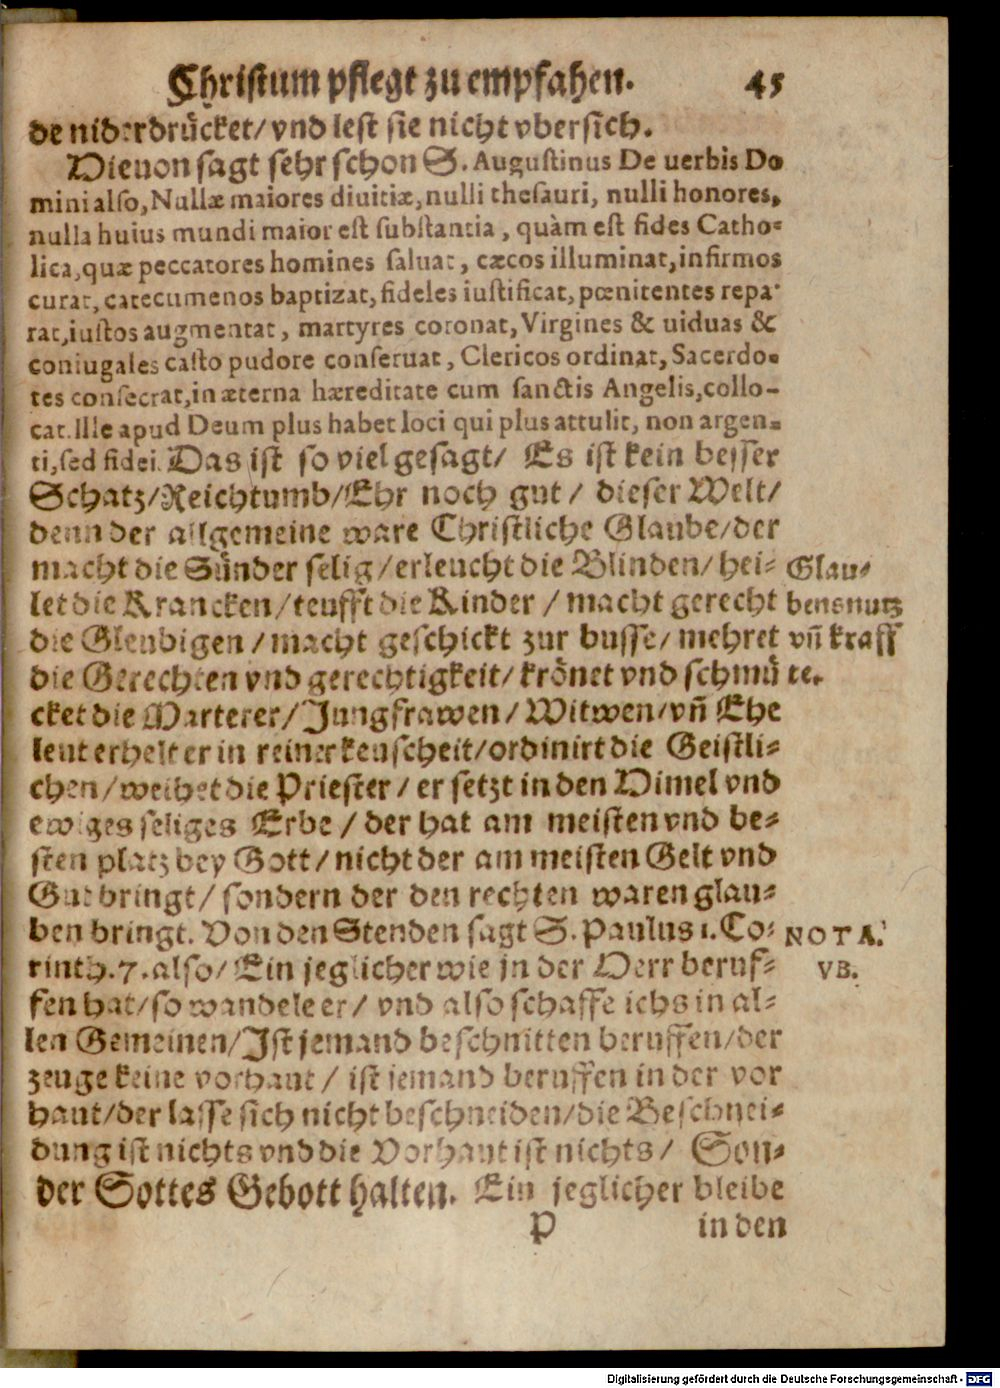 Christum pflegt zu empfahen. 45
de niderdrücket/ vnd lest sie nicht vbersich.
Hieuon sagt sehr schon S. Augustinus De uerbis Do
mini also, Nullæ maiores diuitiæ, nulli thesauri, nulli honores,
nulla huius mundi maior est substantia, quàm est fides Catho-
lica, quæ peccatores homines saluat, cæcos illuminat, infirmos
curat, catecumenos baptizat, fideles iustificat, pœnitentes repa-
rat, iustos augmentat, martyres coronat, Virgines & uiduas &
coniugales casto pudore conseruat, Clericos ordinat, Sacerdo-
tes consecrat, in æterna hæreditate cum sanctis Angelis, collo-
cat. Ille apud Deum plus habet loci qui plus attulit, non argen-
ti, sed fidei. Das ist so viel gesagt/ Es ist kein besser
Schatz/ Reichtumb/ Ehr noch gut/ dieser Welt/
denn der allgemeine ware Christliche Glaube/ der
macht die Sünder selig/ erleucht die Blinden/ hei- Glau-
let die Krancken/ teufft die Kinder/ macht gerecht bens nutz
die Gleubigen/ macht geschickt zur busse/ mehret vñ kraff
die Gerechten vnd gerechtigkeit/ krönet vnd schmü te.
cket die Marterer/ Jungfrawen/ Witwen/ vñ Ehe
leut erhelt er in reiner keuscheit/ ordinirt die Geistli-
chen/ weihet die Priester/ er setzt in den Himel vnd
ewiges seliges Erbe/ der hat am meisten vnd be-
sten platz bey Gott/ nicht der am meisten Gelt vnd
Gut bringt/ sondern der den rechten waren glau-
ben bringt. Von den Stenden sagt S. Paulus 1. Co- NOTA.
rinth. 7. also/ Ein jeglicher wie jn der Herr beruf- VB.
fen hat/ so wandele er/ vnd also schaffe ichs in al-
len Gemeinen/ Ist jemand beschnitten beruffen/ der
zeuge keine vorhaut/ ist jemand beruffen in der vor
haut/ der lasse sich nicht beschneiden/ die Beschnei-
dung ist nichts vnd die Vorhaut ist nichts/ Son-
der Gottes Gebott halten. Ein jeglicher bleibe
P in den
Digitalisierung gefördert durch die Deutsche Forschungsgemeinschaft - DFG